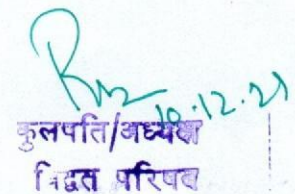 10.12.21
कुलपति/अध्यक्ष
विद्वत परिषद